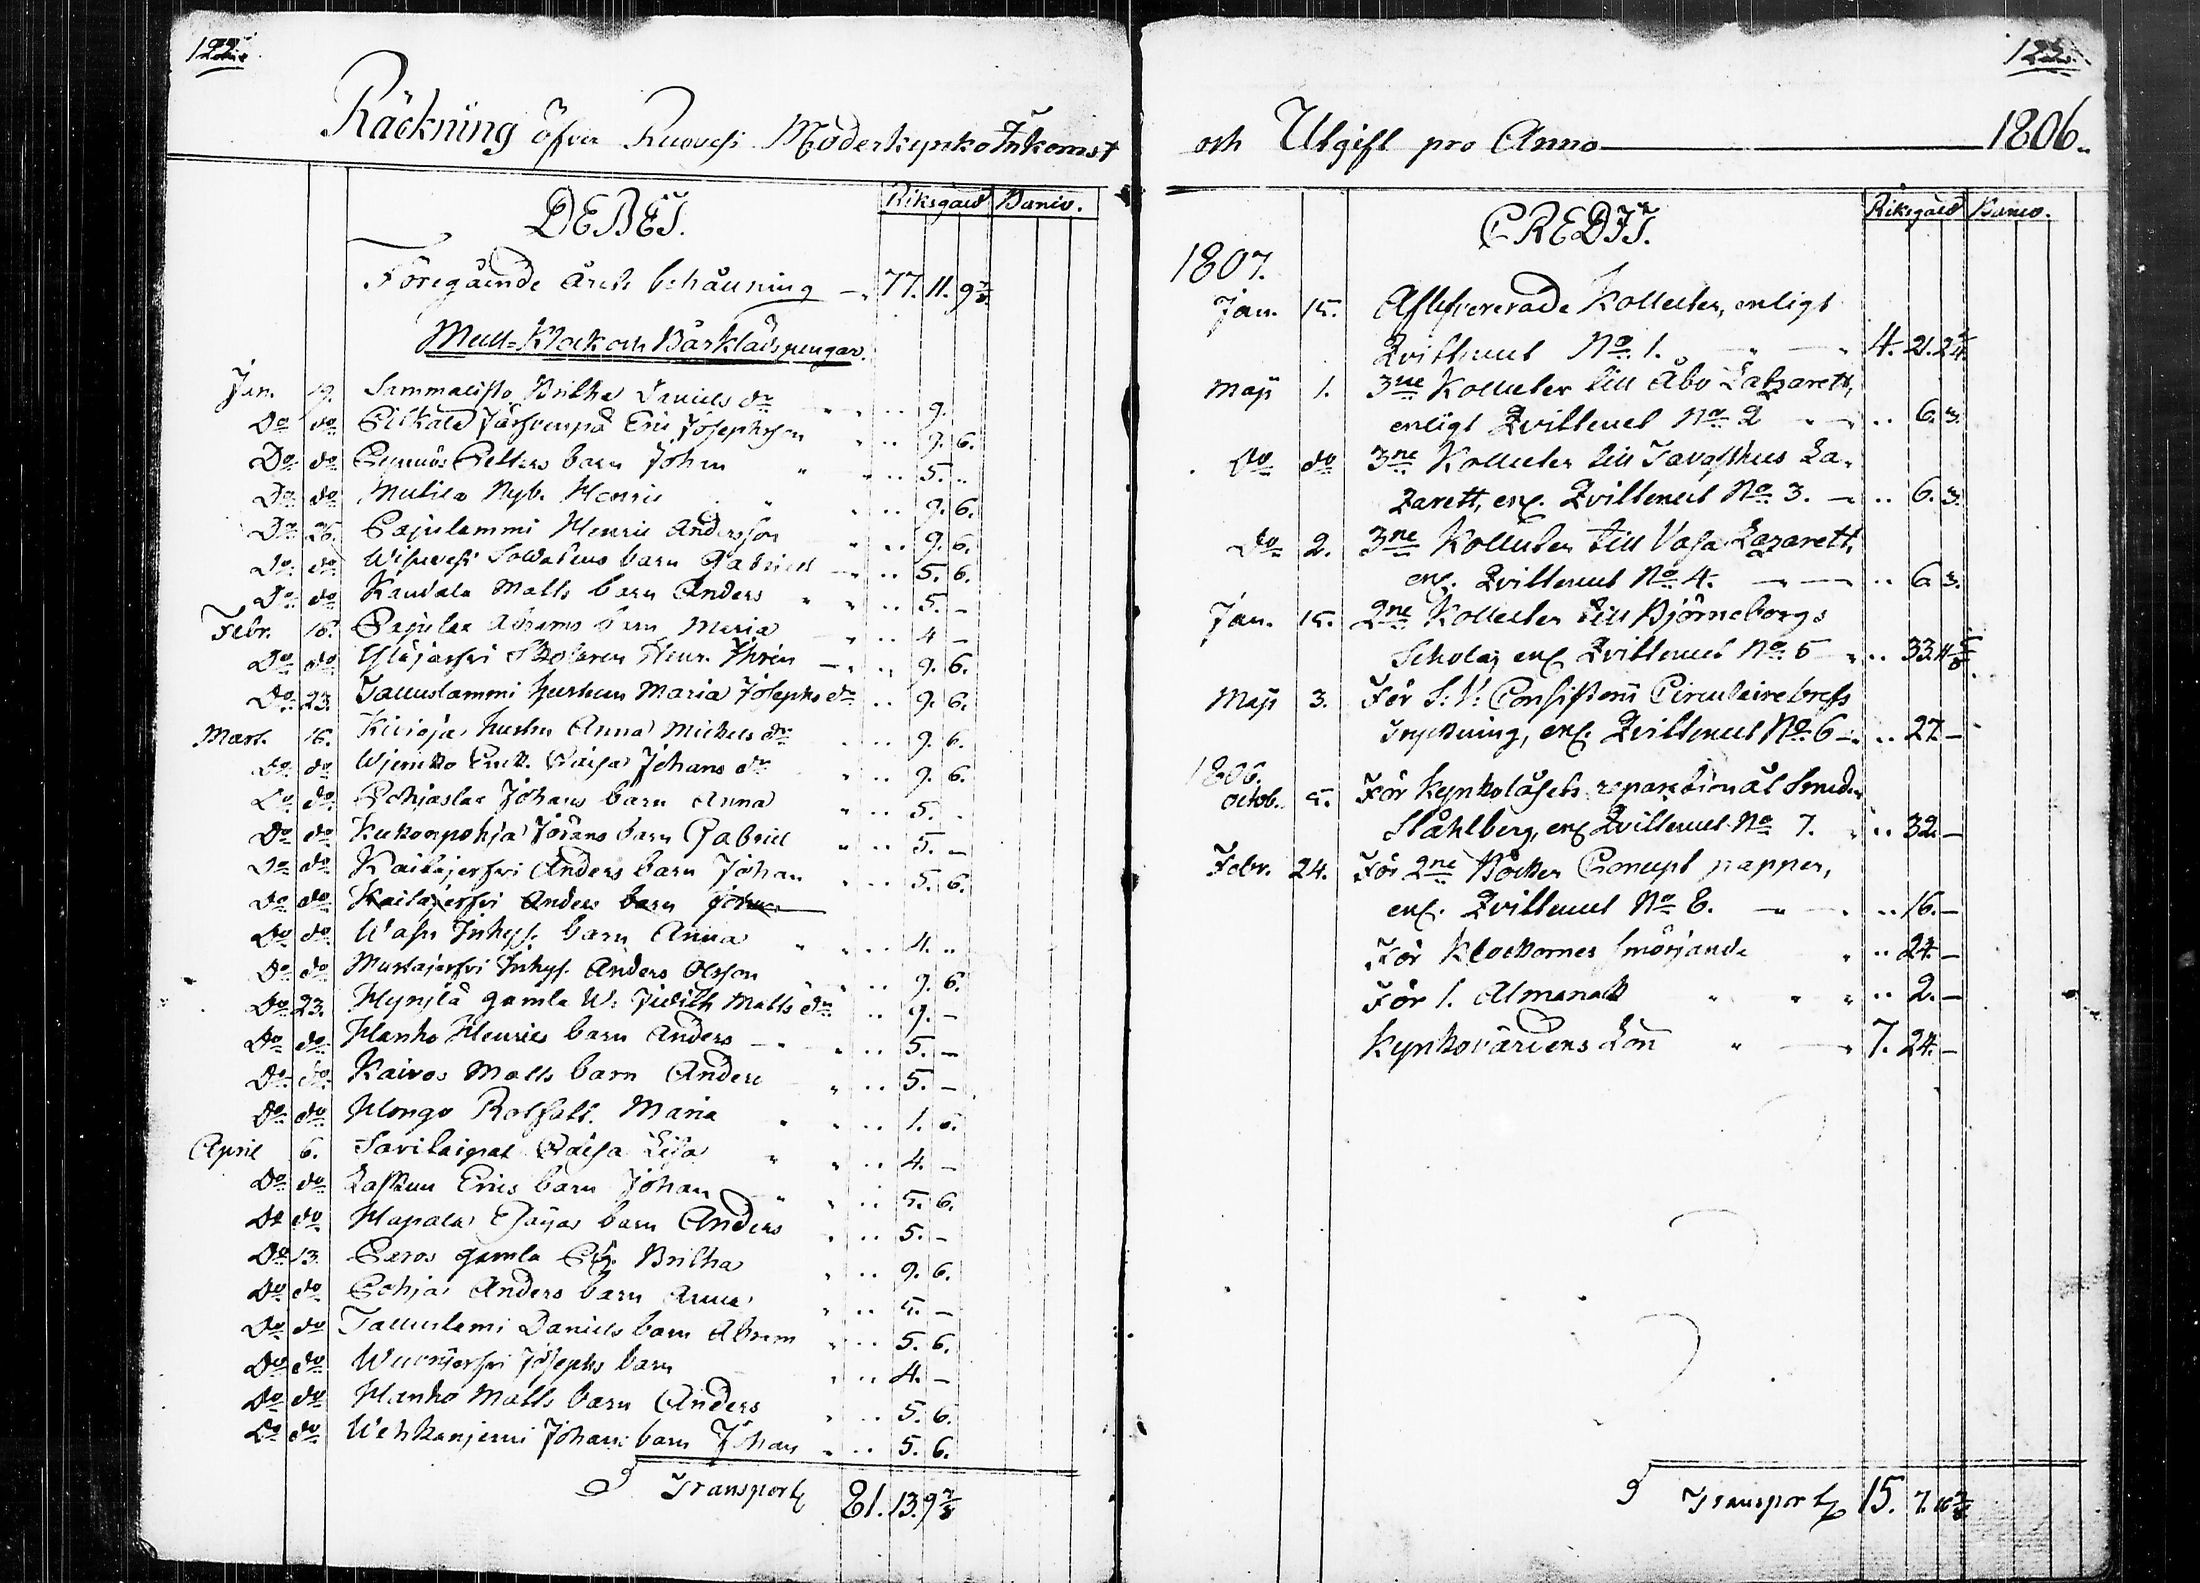 Räckning öfver Ruovesi Moderkyrko Inkomst
DEBET.
Riksgäld Banco.
Föregående årets behållning 77. 11. 9 7/8
Mull= Klock och Bårklädspengar.
Jan. 19. Sammalisto Britha Daniels dr 9.
Do do Pelkälä Järfvenpä Eric Josephsson 9. 6.
Do do Petters barn Johan 5. ..
Do do Mutila Nyb. Henric 9. 6.
Do 26. Pajulammi Henric Andersson 9. 6.
Do do Wisuvesi Soldatens barn Gabriel 5. 6.
Do do Kaudala Matts barn Anders 5. –
Febr. 16. Pajulax Abrams barn Maria 4 –
Do do Ylajärfvi Henr. Thrén 9. 6.
Do 23. Talluslammi hustrun Maria Josephs dr 9. 6.
Mart. 16. Kivioja hustru Anna Michels dr 9. 6.
Do do Enk. Caisa Johans dr 9. 6.
Do do Pohjaslax Johans barn Anna 5. .
Do do Kukonpohja Jörans barn Gabriel 5. –
Do do Kaitajerfvi Anders barn Johan 5. 6.
Do do Kaitajerfvi Anders barn Johan
Do do Inhys. barn Anna 4. ..
Do do Mustajerfvi Inhys. Anders Olsson 9. 6.
Do 23. Hynylä gamla W: Judith Matts dr 9. –
Do do Hanho Henrics barn Anders 5. –
Do do Kaivos Matts barn Anders 5. –
Do do Hongo Maria 1. 6.
April 6. Savilaipal Caisa Lisa 4. –
Do do Laskun Erics barn Johan 5. 6.
Do do Hapala barn Anders 5. –
Do 13. Pæros gamla Britha 9. 6.
Do do Pohja Anders barn Anna 5. –
Do do Talluslami Daniels barn Abram 5. 6.
Do do Wuorijerfvi Josephs barn 4. –
Do do Hanho Matts barn Anders 5. 6.
Do do Wehkanjerni Johans barn Johan 5. 6.
Transport 81. 13. 9 7/8
och Utgift pro Anno 1806.
CREDIT.
Riksgäld Banco.
1807.
Jan. 15. Aflefvererade Kollecter, enligt
Qvittencet No 1. 4. 21. 2
Maji 1. 3ne Kollecter till Åbo Latzarett,
enligt Qvittencet No 2 6. 3.
do do 3ne Kollecter till Tavasthus La-
zarett, enl. Qvittencet No 3. 6. 3.
do 2. 3ne Kollecter till Vasa Lazarett,
enl. Qvittencet No 4. 6. 3.
Jan. 15. 2ne Kollecter till Björneborgs
Schola, enl. Qvittencet No 5 33. 4
Maji 3. För S. V. Consistorii Circulairebrefs
Tryckning, enl. Qvittencet No 6 27. –
1806.
Octob. 5. För Kyrkolåsets reparation åt Smeden
Ståhlberg, enl. Qvittencet No 7. 32. –
Febr. 24. För 2ne Böcker Concept papper,
enl. Qvittencet No 8. 16. –
För Klockornes smörjande 24. –
För 1. Almanack 2. –
Kyrkovärdens Lön 7. 24. –
Transport 15. 7.